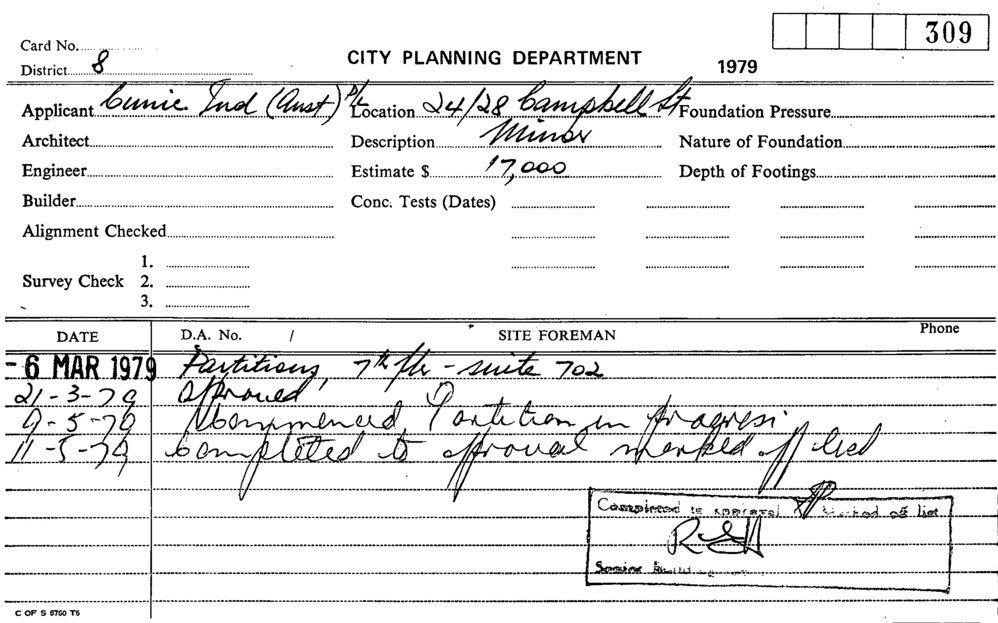 309
Card No.
CITY PLANNING DEPARTMENT
1979
District 8
Applicant Cunic Ind (Aust) P/L Location 24/28 Campbell St Foundation Pressure
Architect Description Minor Nature of Foundation
Engineer Estimate $ 17,000 Depth of Footings
Builder Conc. Tests (Dates)
Alignment Checked
1.
Survey Check 2.
3.
DATE D.A. No. / SITE FOREMAN Phone
- 6 MAR 1979 Partitions, 7th flr - suite 702
21-3-79 approved
9-5-79 Commenced Partition in progress
11-5-79 Completed to approval marked off list
Completed to approval & Marked off list
Senior Building
C OF S 8760 T5